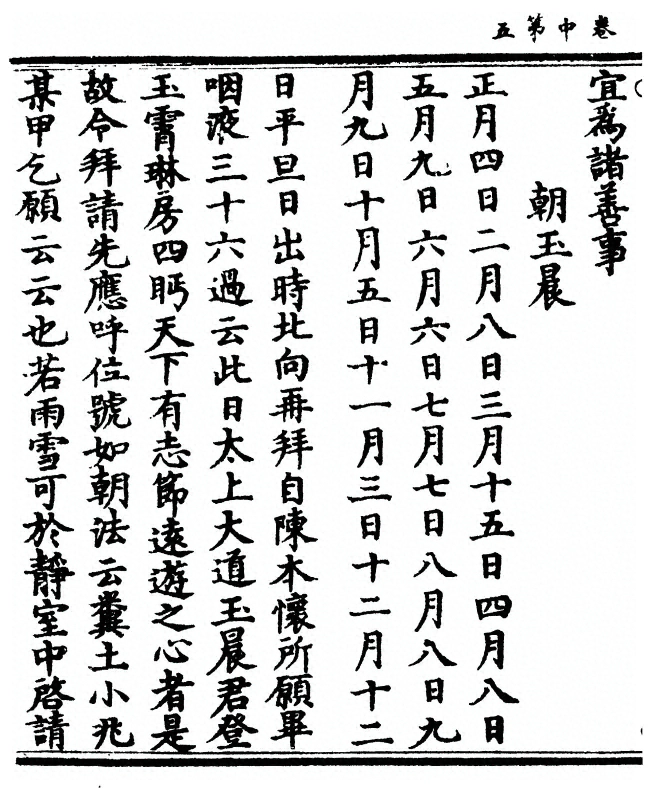 卷中第五
宜爲諸善事
朝玉晨
正月四日二月八日三月十五日四月八日
五月九日六月六日七月七日八月八日九
月九日十月五日十一月三日十二月十二
日平旦日出時北向再拜自陳本懷所願畢
咽液三十六過云此日太上大道玉晨君登
玉霄琳房四眄天下有志節遠遊之心者是
故令拜請先應呼位號如朝法云糞土小兆
某甲乞願云云也若雨雪可於靜室中啓請